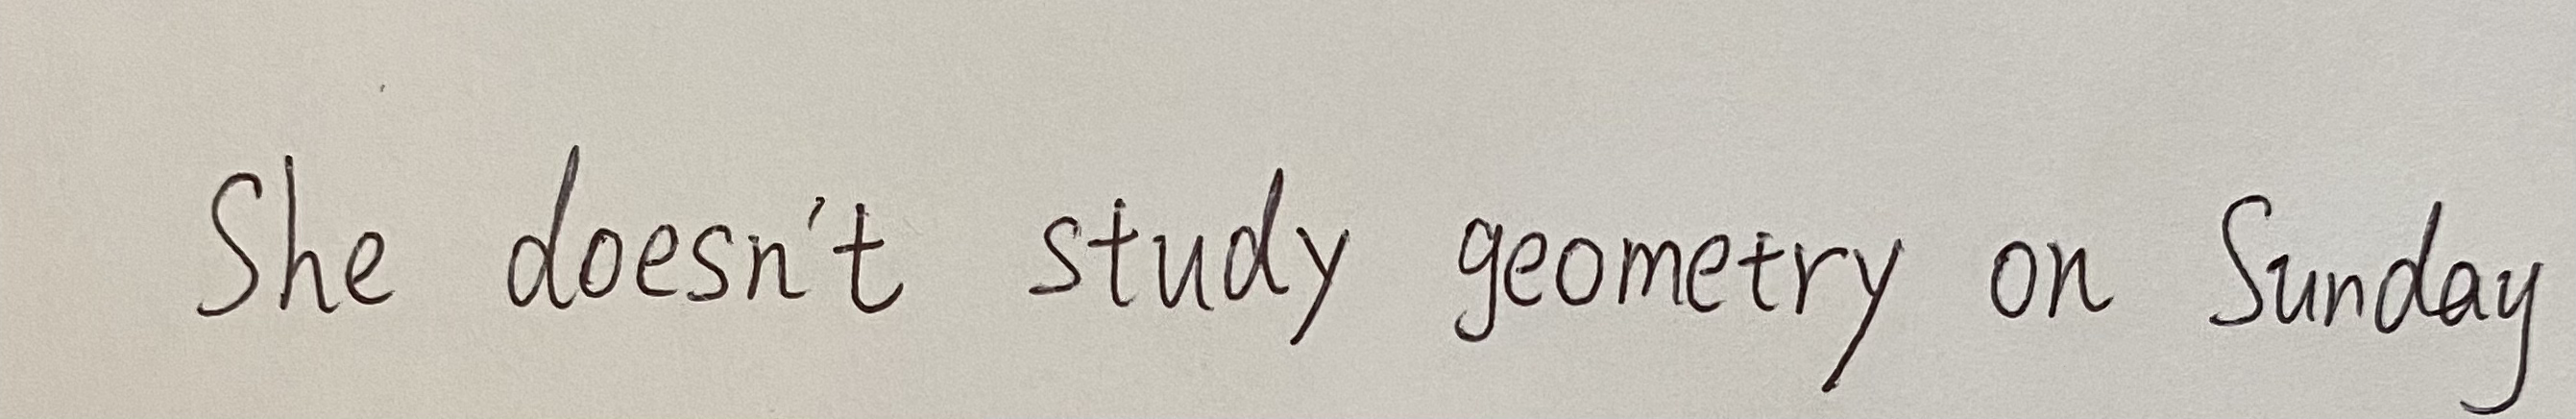 She doesn't study geometry on Sunday